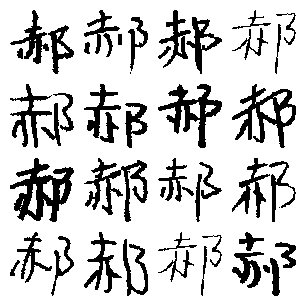 郝郝郝郝
郝郝郝郝
郝郝郝郝
郝郝郝郝